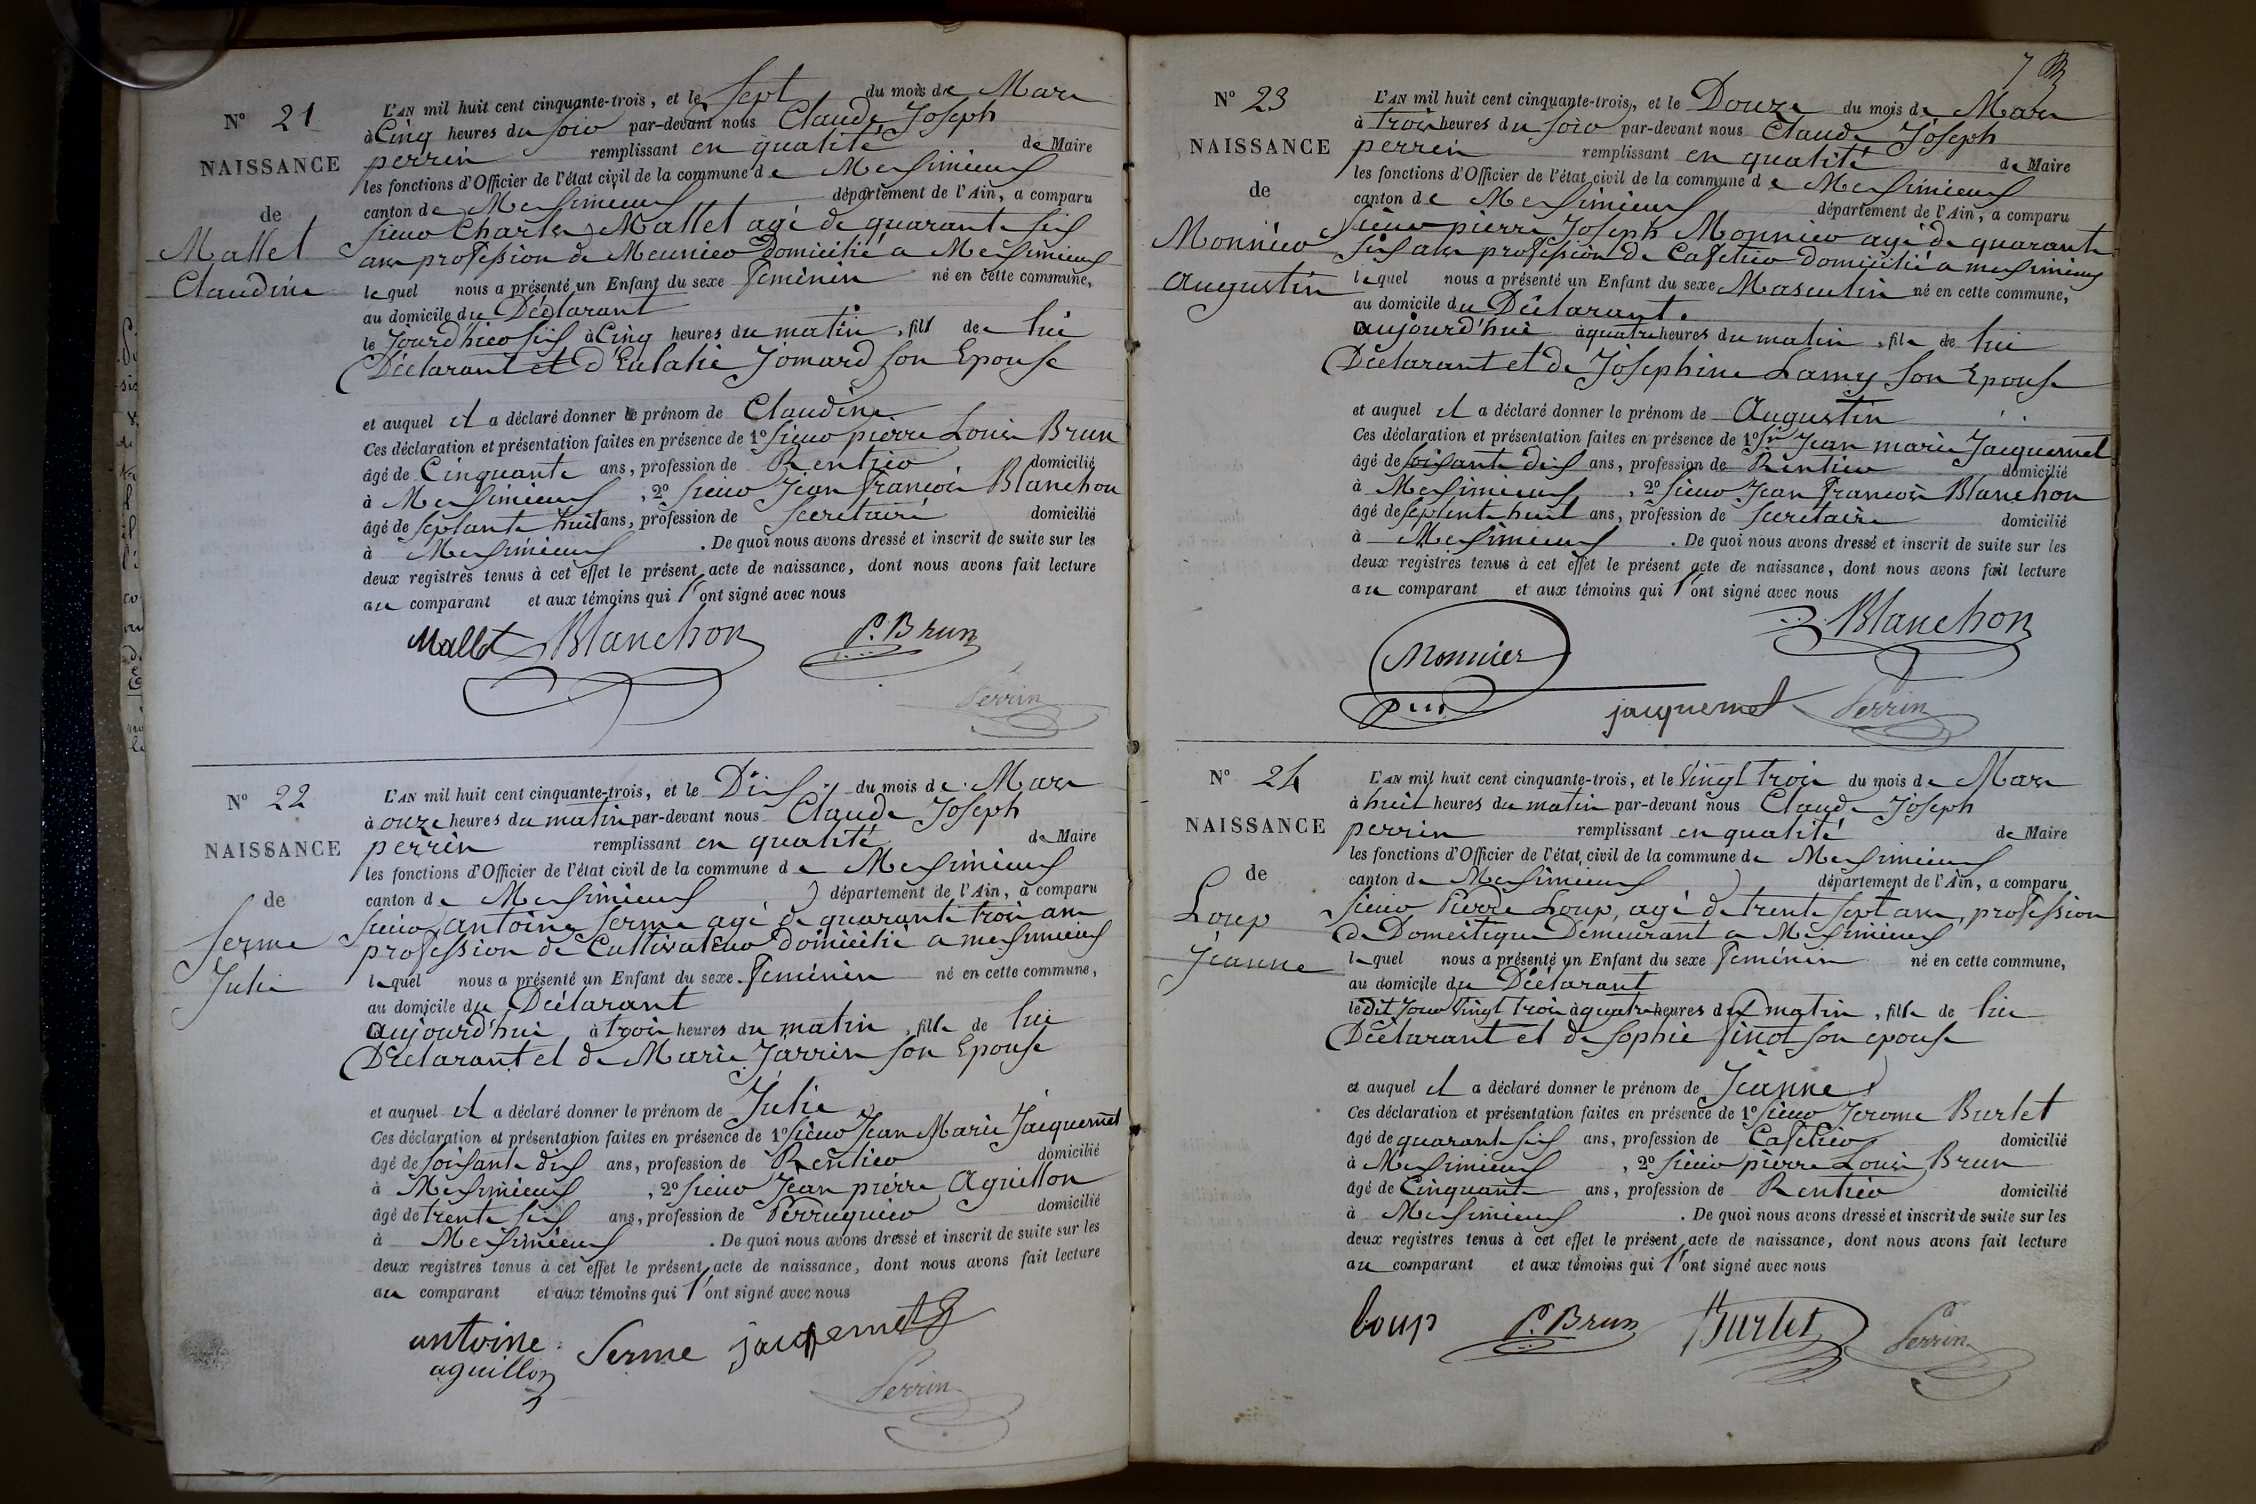 N° 21
NAISSANCE
de
Mallet
Claudine
L'AN mil huit cent cinquante-trois, et le Sept du mois de Mars
à Cinq heures du soir par-devant nous Claude Joseph
perrin remplissant en qualité de Maire
les fonctions d'Officier de l'état civil de la commune de Meximieux
canton de Meximieux département de l'Ain, a comparu
sieur Charles Mallet agé de quarante six
ans profession de Meunier Domicilié a Meximieux
lequel nous a présenté un Enfant du sexe feminin né en cette commune,
au domicile du Déclarant
le Jourd'hier six à Cinq heures du matin, fille de lui
Déclarant et d'Eulalie Jomard son Epouse
et auquel il a déclaré donner le prénom de Claudine
Ces déclaration et présentation faites en présence de 1° sieur pierre Louis Brun
âgé de Cinquante ans, profession de Rentier domicilié
à Meximieux, 2° sieur Jean françois Blanchon
âgé de septante huit ans, profession de secretaire domicilié
à Meximieux. De quoi nous avons dressé et inscrit de suite sur les
deux registres tenus à cet effet le présent acte de naissance, dont nous avons fait lecture
au comparant et aux témoins qui l'ont signé avec nous
Mallet Blanchon P. Brun
Perrin
N° 22
NAISSANCE
de
Serme
Julie
L'AN mil huit cent cinquante-trois, et le Dix du mois de Mars
à onze heures du matin par-devant nous Claude Joseph
perrin remplissant en qualité de Maire
les fonctions d'Officier de l'état civil de la commune de Meximieux
canton de Meximieux département de l'Ain, a comparu
sieur antoine Serme agé de quarante trois ans
profession de Cultivateur domicilié a meximieux
lequel nous a présenté un Enfant du sexe feminin né en cette commune,
au domicile du Déclarant
aujourd'hui à trois heures du matin, fille de lui
Déclarant et de Marie Jarrin son Epouse
et auquel il a déclaré donner le prénom de Julie
Ces déclaration et présentation faites en présence de 1° sieur Jean Marie Jacquemet
âgé de soixante dix ans, profession de Rentier domicilié
à Meximieux, 2° sieur Jean pierre Aguillon
âgé de trente six ans, profession de Perruquier domicilié
à Meximieux. De quoi nous avons dressé et inscrit de suite sur les
deux registres tenus à cet effet le présent acte de naissance, dont nous avons fait lecture
au comparant et aux témoins qui l'ont signé avec nous
antoine Serme jacquemet
aguillon
Perrin
7
N° 23
NAISSANCE
de
Monnier
Augustin
L'AN mil huit cent cinquante-trois, et le Douze du mois de Mars
à trois heures du soir par-devant nous Claude Joseph
perrin remplissant en qualité de Maire
les fonctions d'Officier de l'état civil de la commune de Meximieux
canton de Meximieux département de l'Ain, a comparu
sieur pierre Joseph Monnier agé de quarante
six ans profession de Cafetier domicilié a meximieux
lequel nous a présenté un Enfant du sexe Masculin né en cette commune,
au domicile du Déclarant.
aujourd'hui à quatre heures du matin, fils de lui
Déclarant et de Joséphine Lamy son Epouse
et auquel il a déclaré donner le prénom de Augustin
Ces déclaration et présentation faites en présence de 1° sr Jean marie Jacquemet
âgé de soixante dix ans, profession de Rentier domicilié
à Meximieux, 2° sieur Jean françois Blanchon
âgé de septente huit ans, profession de secretaire domicilié
à Meximieux. De quoi nous avons dressé et inscrit de suite sur les
deux registres tenus à cet effet le présent acte de naissance, dont nous avons fait lecture
au comparant et aux témoins qui l'ont signé avec nous
Blanchon
Monnier
jacquemet Perrin
N° 24
NAISSANCE
de
Loup
Jeanne
L'AN mil huit cent cinquante-trois, et le Vingt trois du mois de Mars
à huit heures du matin par-devant nous Claude Joseph
perrin remplissant en qualité de Maire
les fonctions d'Officier de l'état civil de la commune de Meximieux
canton de Meximieux département de l'Ain, a comparu
sieur Pierre Loup, agé de trente sept ans, profession
de Domestique Demeurant a Meximieux
lequel nous a présenté un Enfant du sexe feminin né en cette commune,
au domicile du Déclarant
le Dit Jour Vingt trois à quatre heures du matin, fille de lui
Déclarant et de Sophie finot son epouse
et auquel il a déclaré donner le prénom de Jeanne
Ces déclaration et présentation faites en présence de 1° sieur Jerome Burlet
âgé de quarante six ans, profession de Cafetier domicilié
à Meximieux, 2° sieur pierre Louis Brun
âgé de Cinquante ans, profession de Rentier domicilié
à Meximieux. De quoi nous avons dressé et inscrit de suite sur les
deux registres tenus à cet effet le présent acte de naissance, dont nous avons fait lecture
au comparant et aux témoins qui l'ont signé avec nous
Loup P. Brun Burlet Perrin